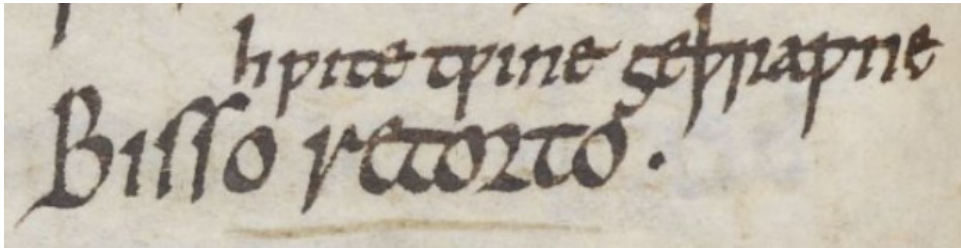 hƿite tƿine geþraƿne
Biſſo retorto.